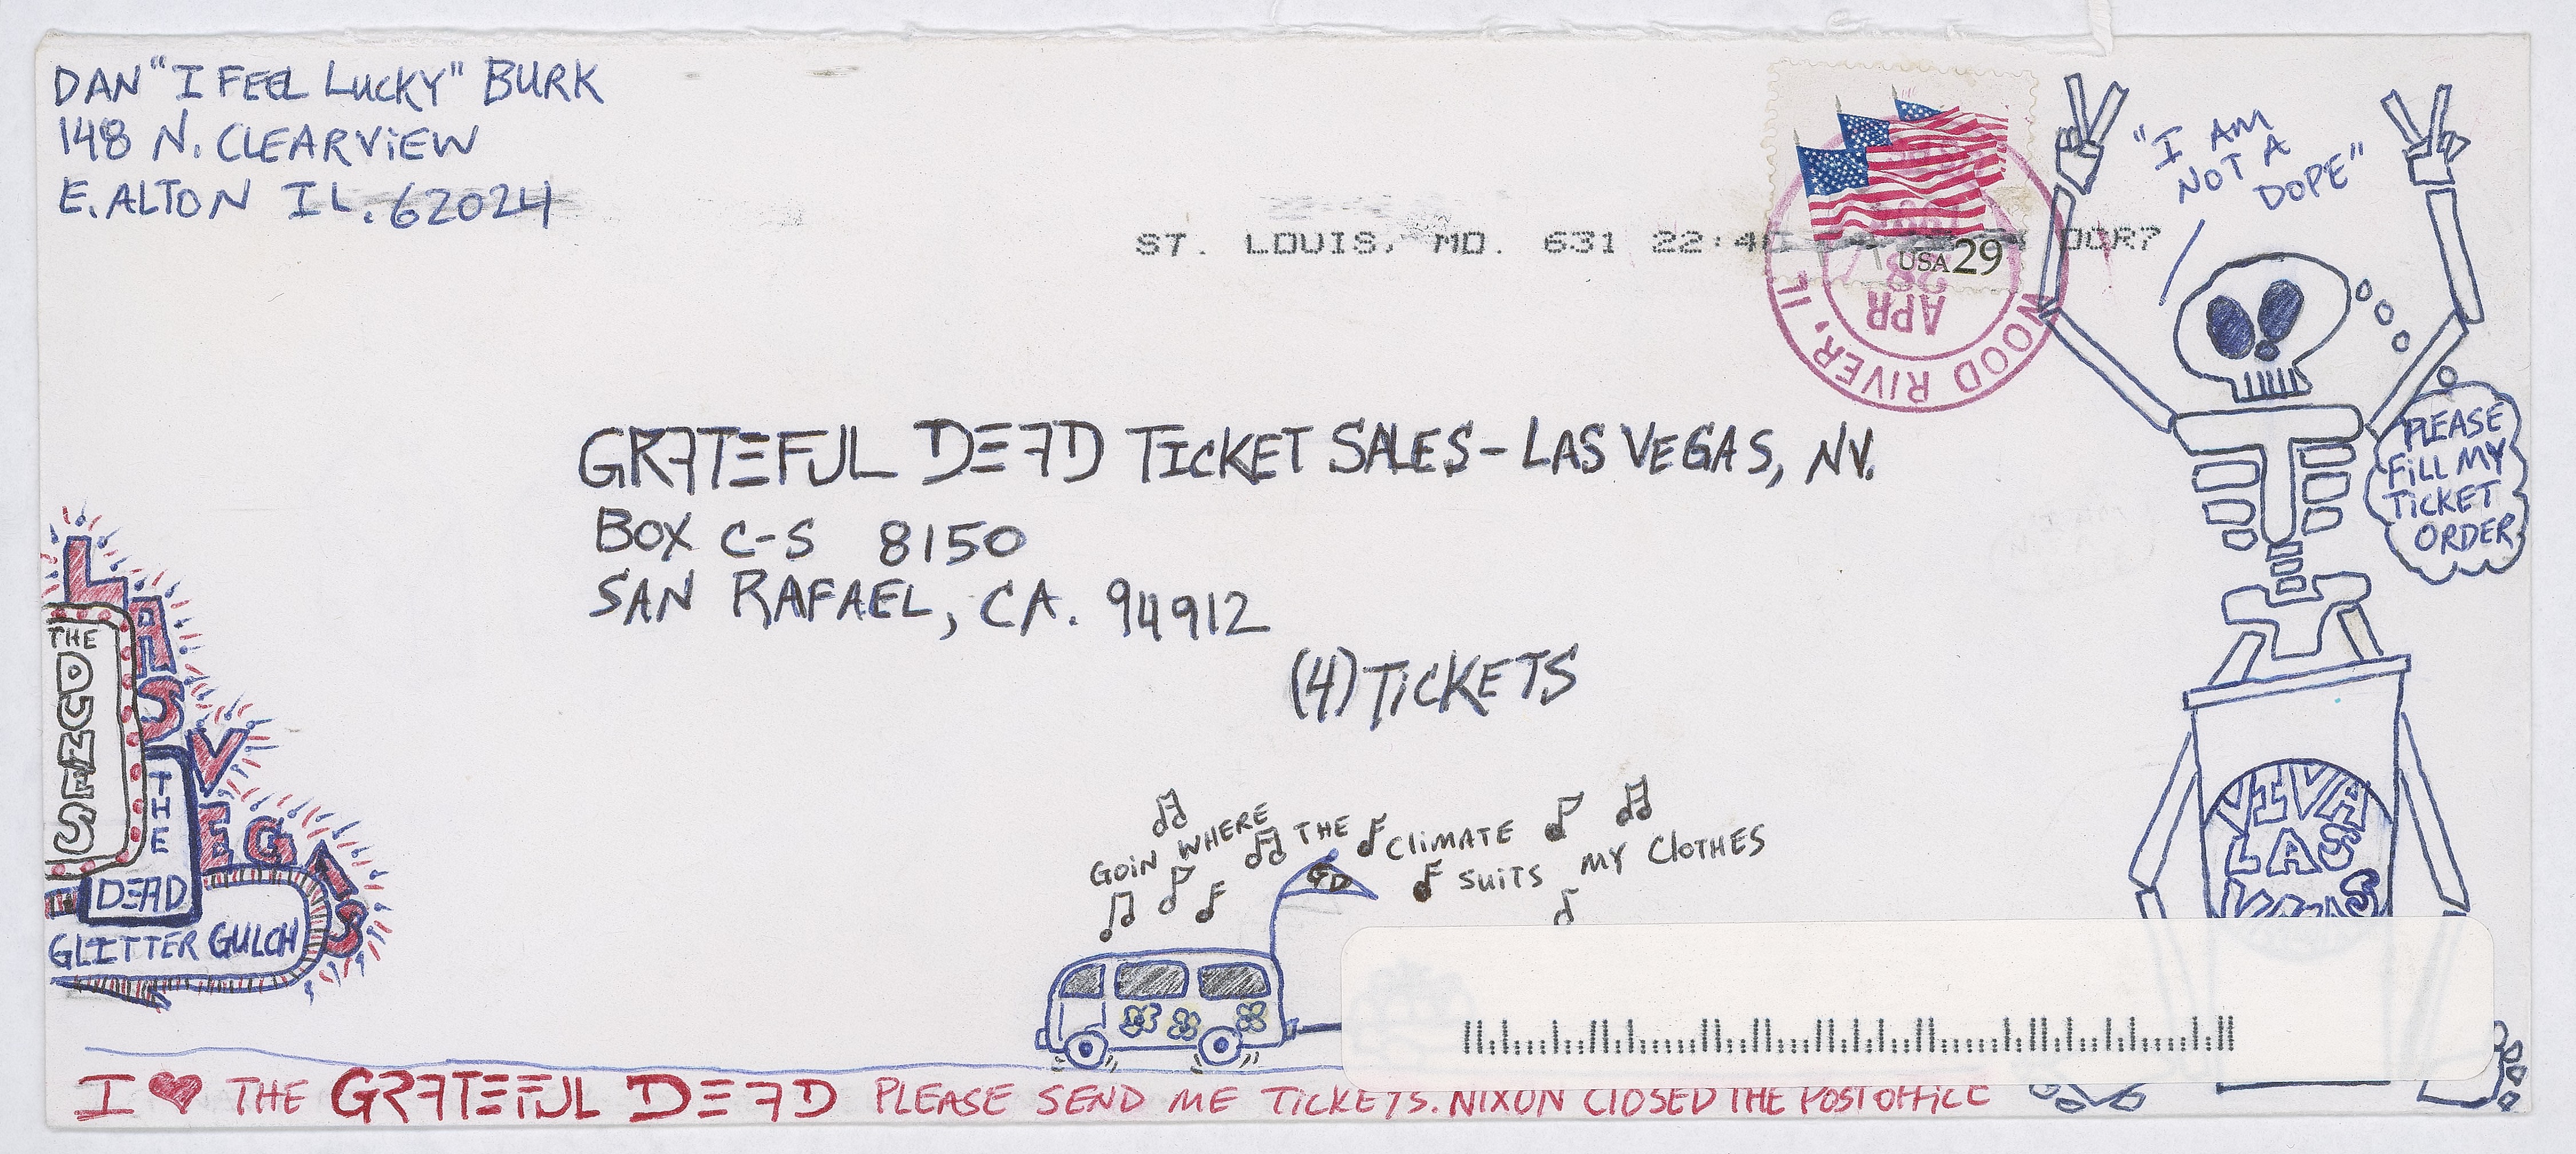 DAN "I FEEL LUCKY" BURK
148 N. CLEARVIEW
E. ALTON IL. 62024
ST. LOUIS, MO. 631 22:4
USA 29
WOOD RIVER, IL
APR
28
"I AM
NOT A
DOPE"
PLEASE
FILL MY
TICKET
ORDER
GRATEFUL DEAD TICKET SALES - LAS VEGAS, NV.
BOX C-S 8150
SAN RAFAEL, CA. 94912
(4) TICKETS
LAS VEGAS
THE
DUNES
THE
DEAD
GLITTER GULCH
GOIN WHERE THE CLIMATE SUITS MY CLOTHES
GD
VIVA
LAS
VEGAS
I ♥ THE GRATEFUL DEAD PLEASE SEND ME TICKETS. NIXON CLOSED THE POST OFFICE